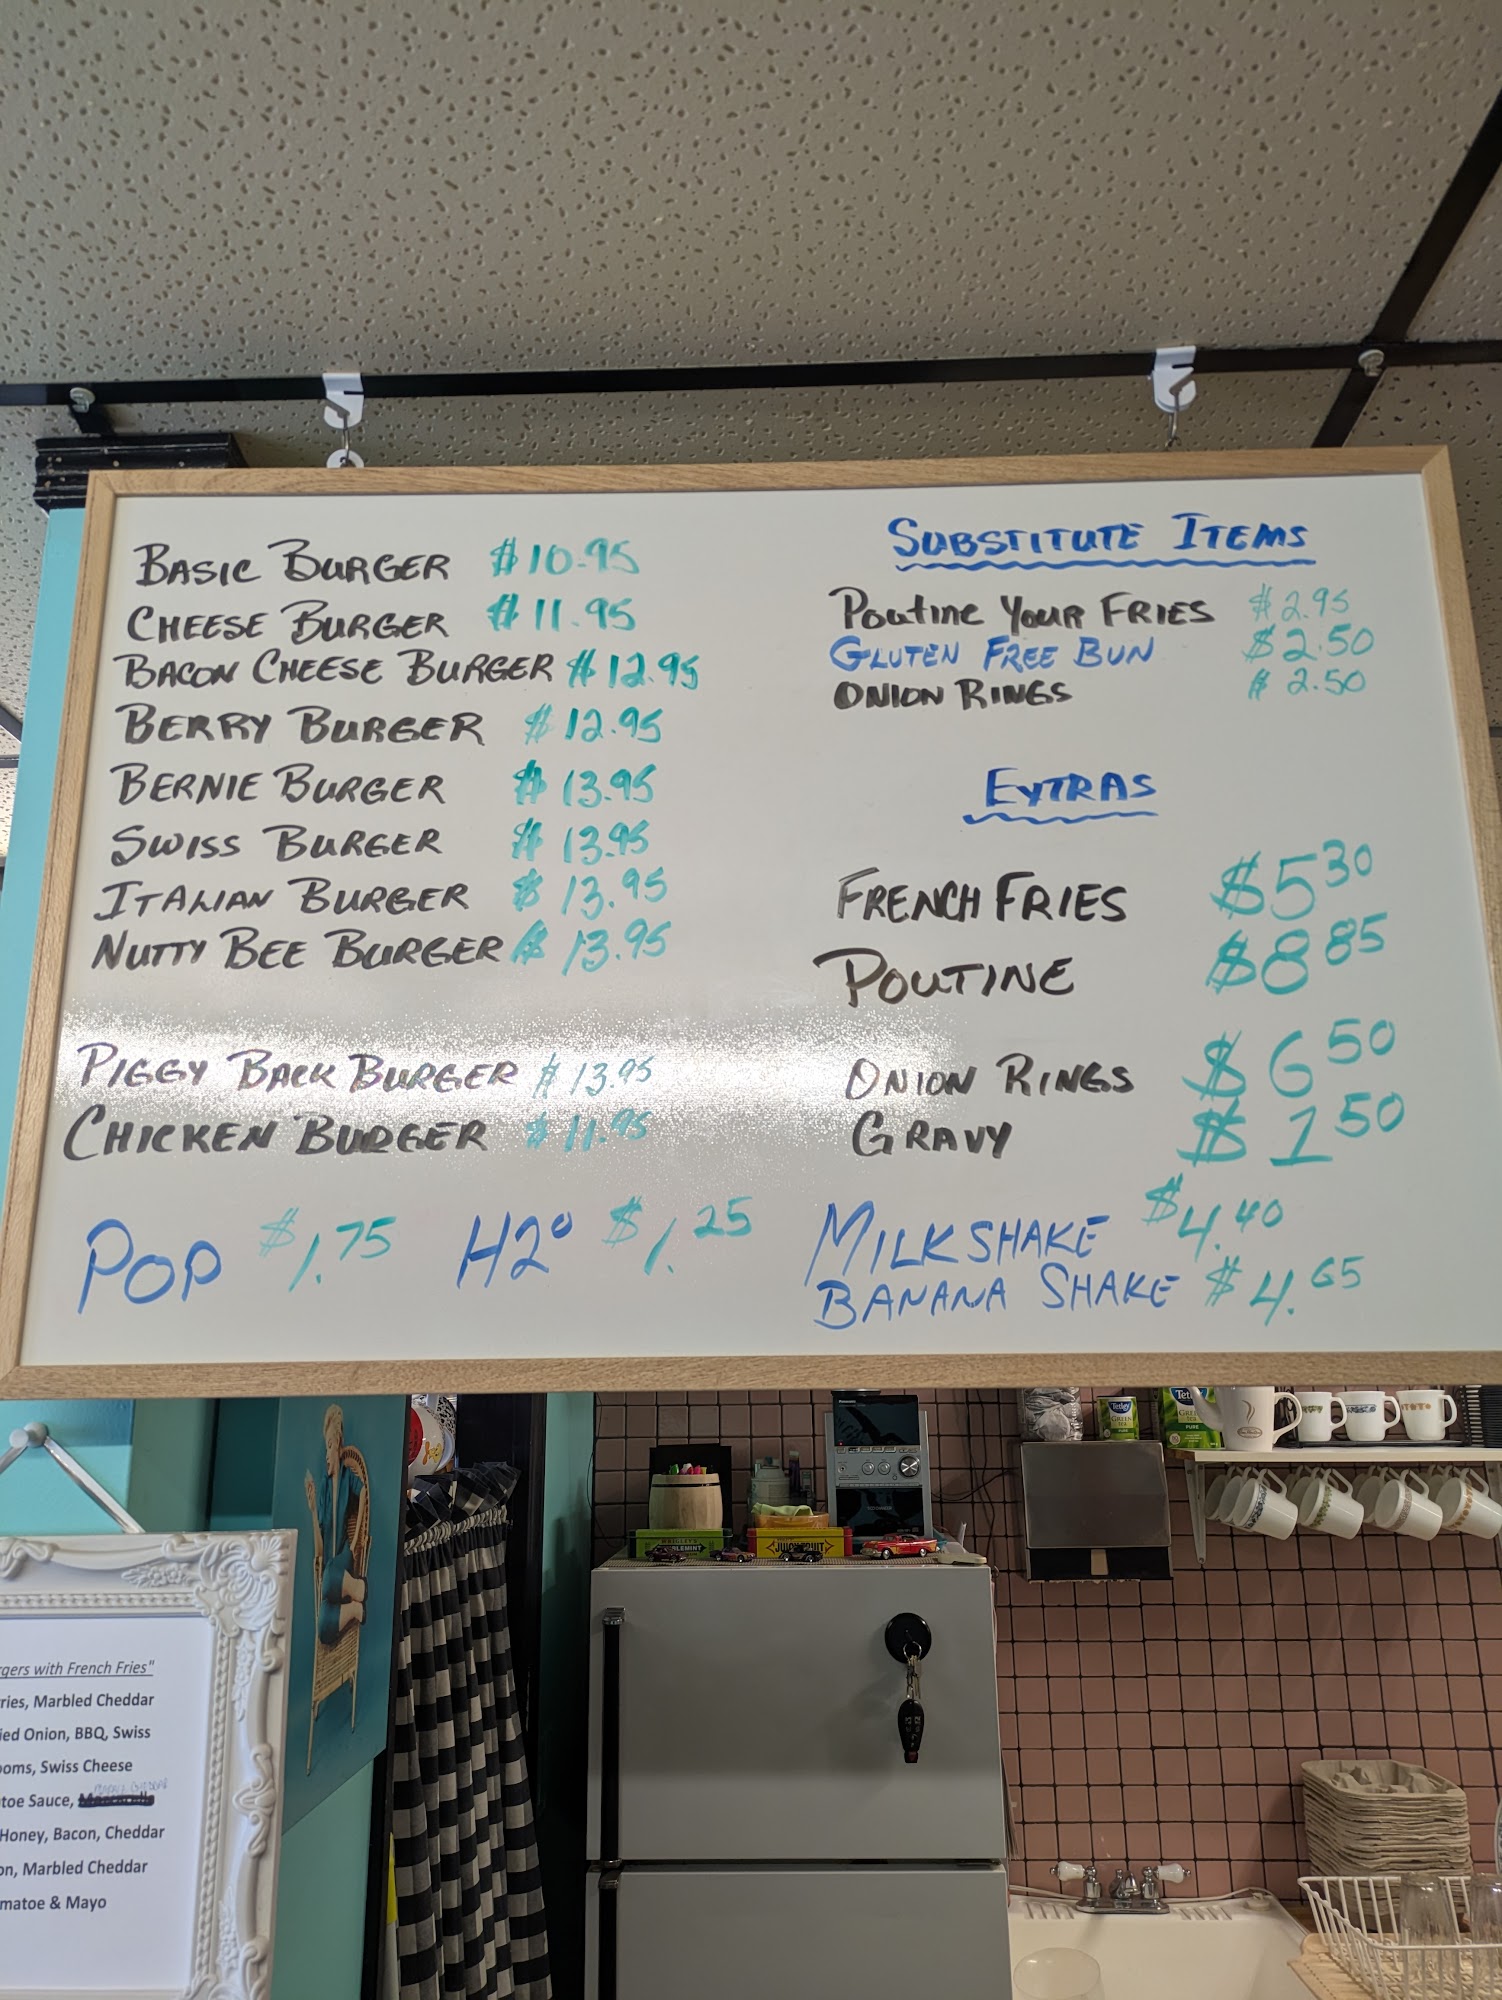 BASIC BURGER $10.95
CHEESE BURGER $11.95
BACON CHEESE BURGER $12.95
BERRY BURGER $12.95
BERNIE BURGER $13.95
SWISS BURGER $13.95
ITALIAN BURGER $13.95
NUTTY BEE BURGER $13.95
PIGGY BACK BURGER $13.95
CHICKEN BURGER $11.95
POP $1.75 H2O $1.25
SUBSTITUTE ITEMS
POUTINE YOUR FRIES $2.95
GLUTEN FREE BUN $2.50
ONION RINGS $2.50
EXTRAS
FRENCH FRIES $5.30
POUTINE $8.85
ONION RINGS $6.50
GRAVY $1.50
MILKSHAKE $4.40
BANANA SHAKE $4.65
Tetley
GREEN
Tetl
PURE
JUICY FRUIT
rgers with French Fries"
ries, Marbled Cheddar
ied Onion, BBQ, Swiss
ooms, Swiss Cheese
toe Sauce,
Honey, Bacon, Cheddar
on, Marbled Cheddar
matoe & Mayo